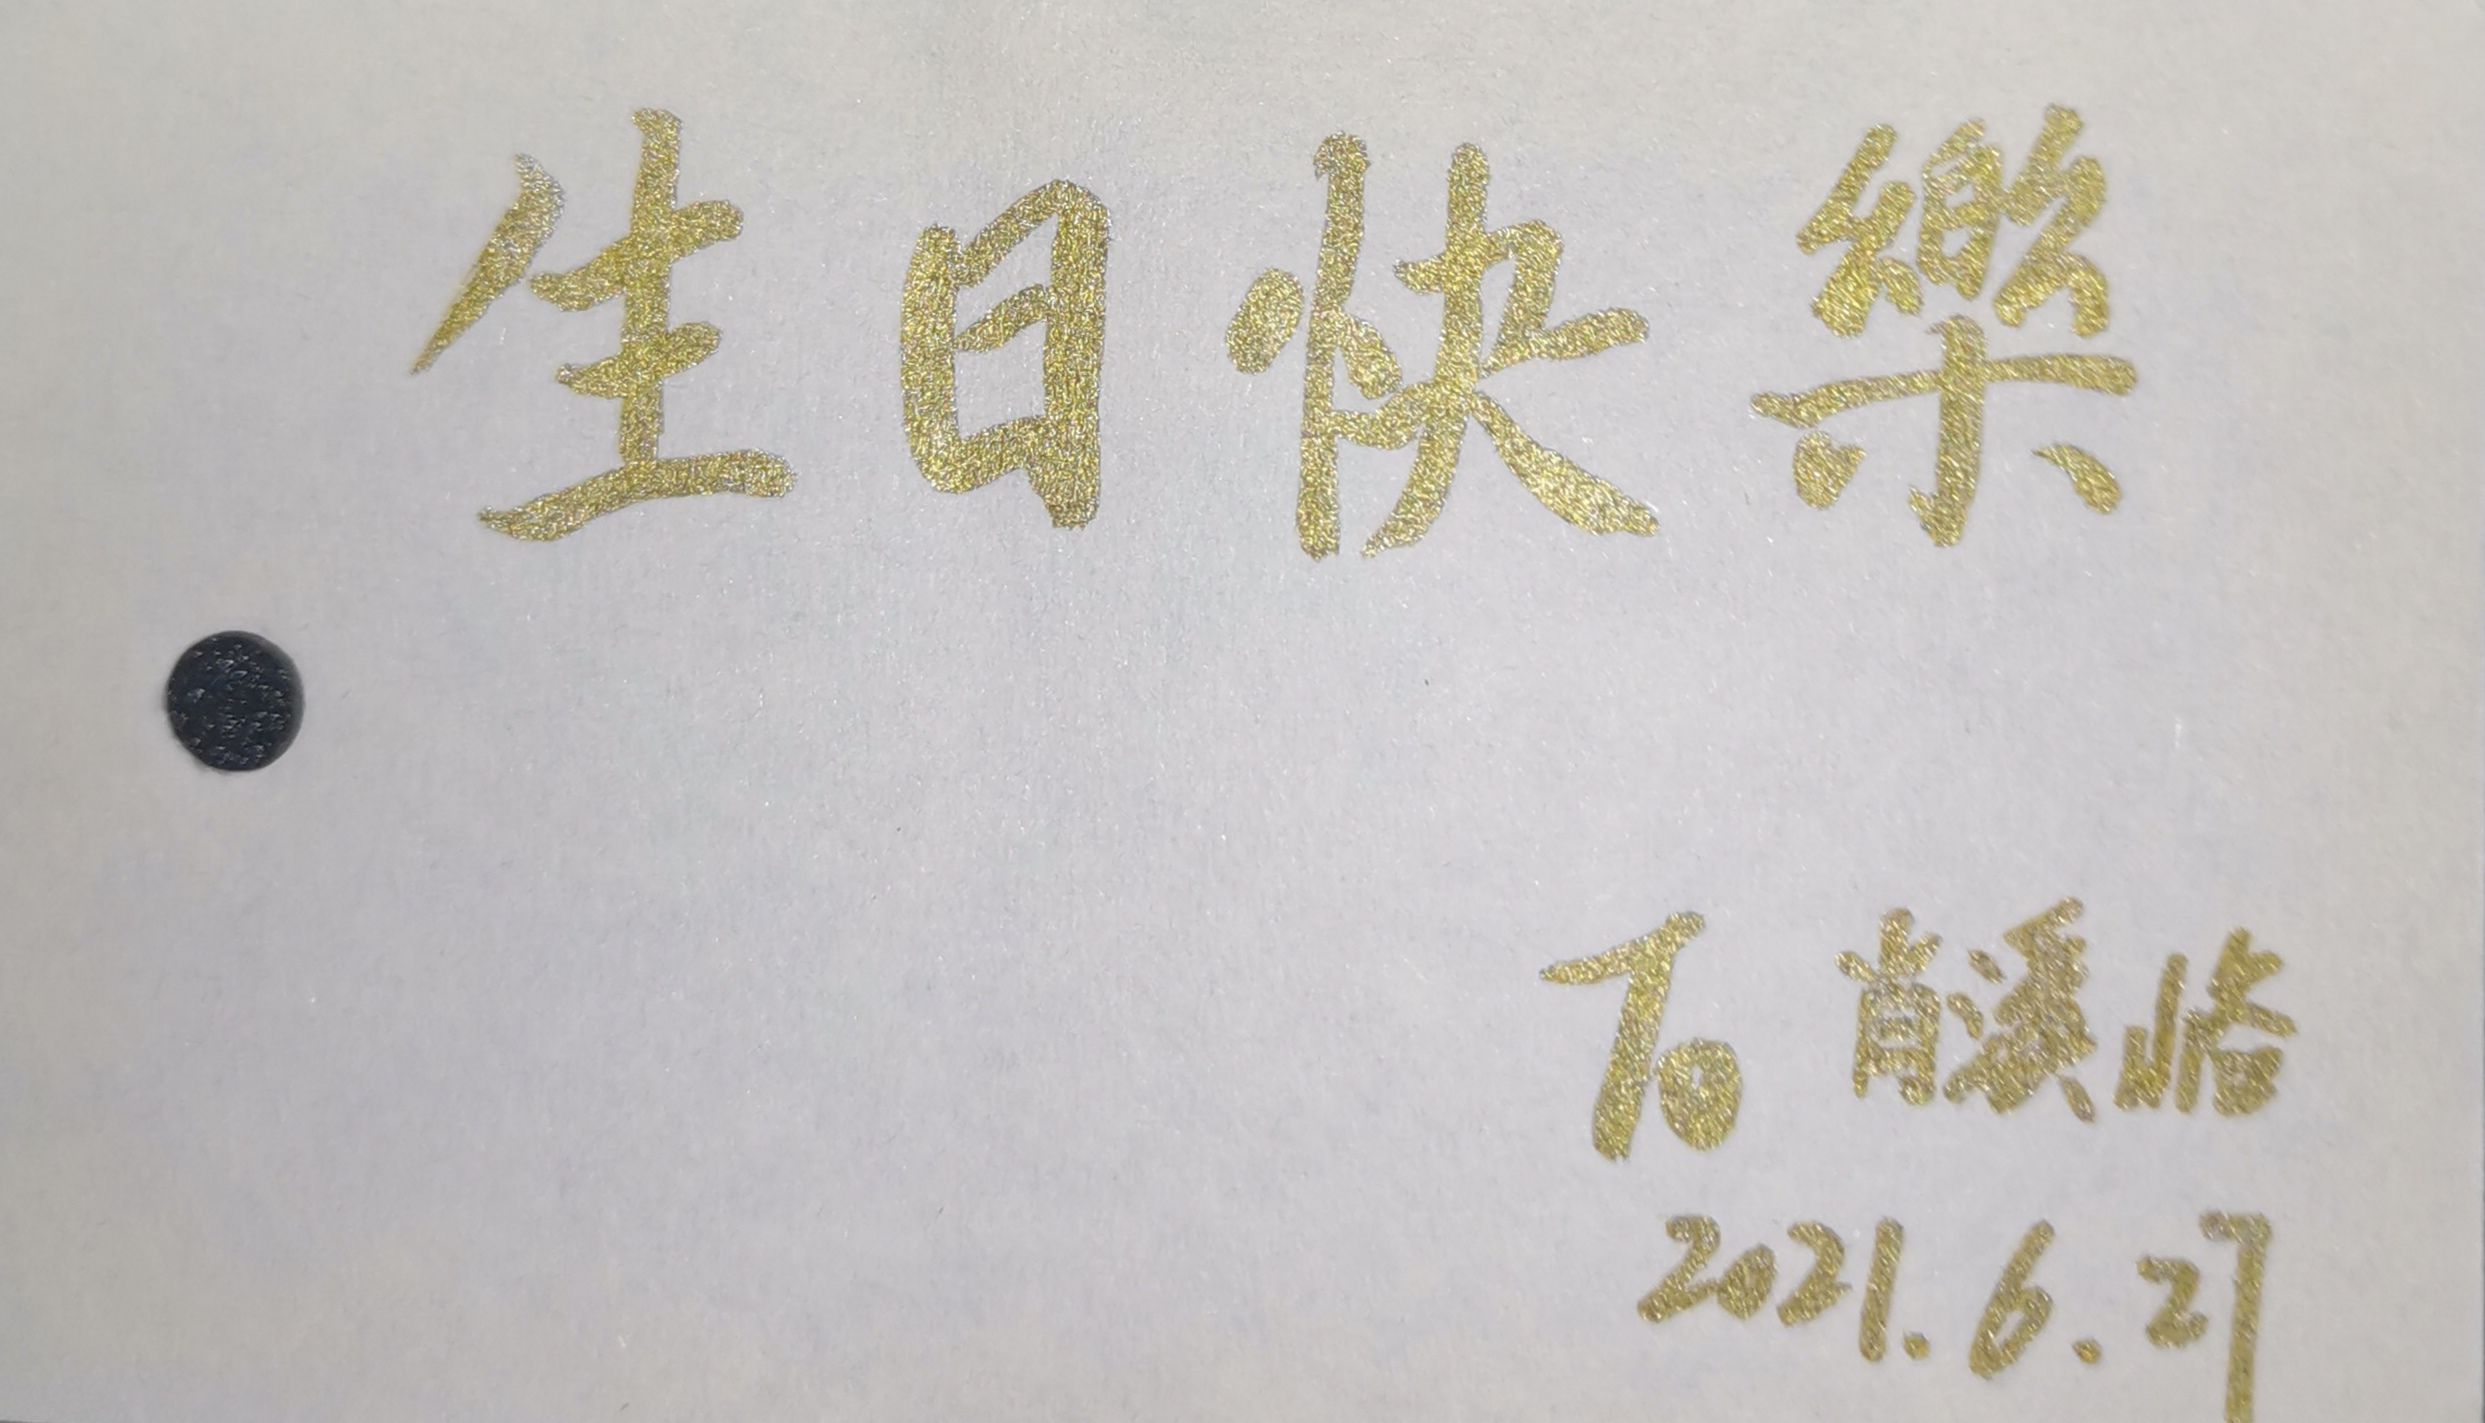 生日快樂
To 肖溪临
2021.6.27